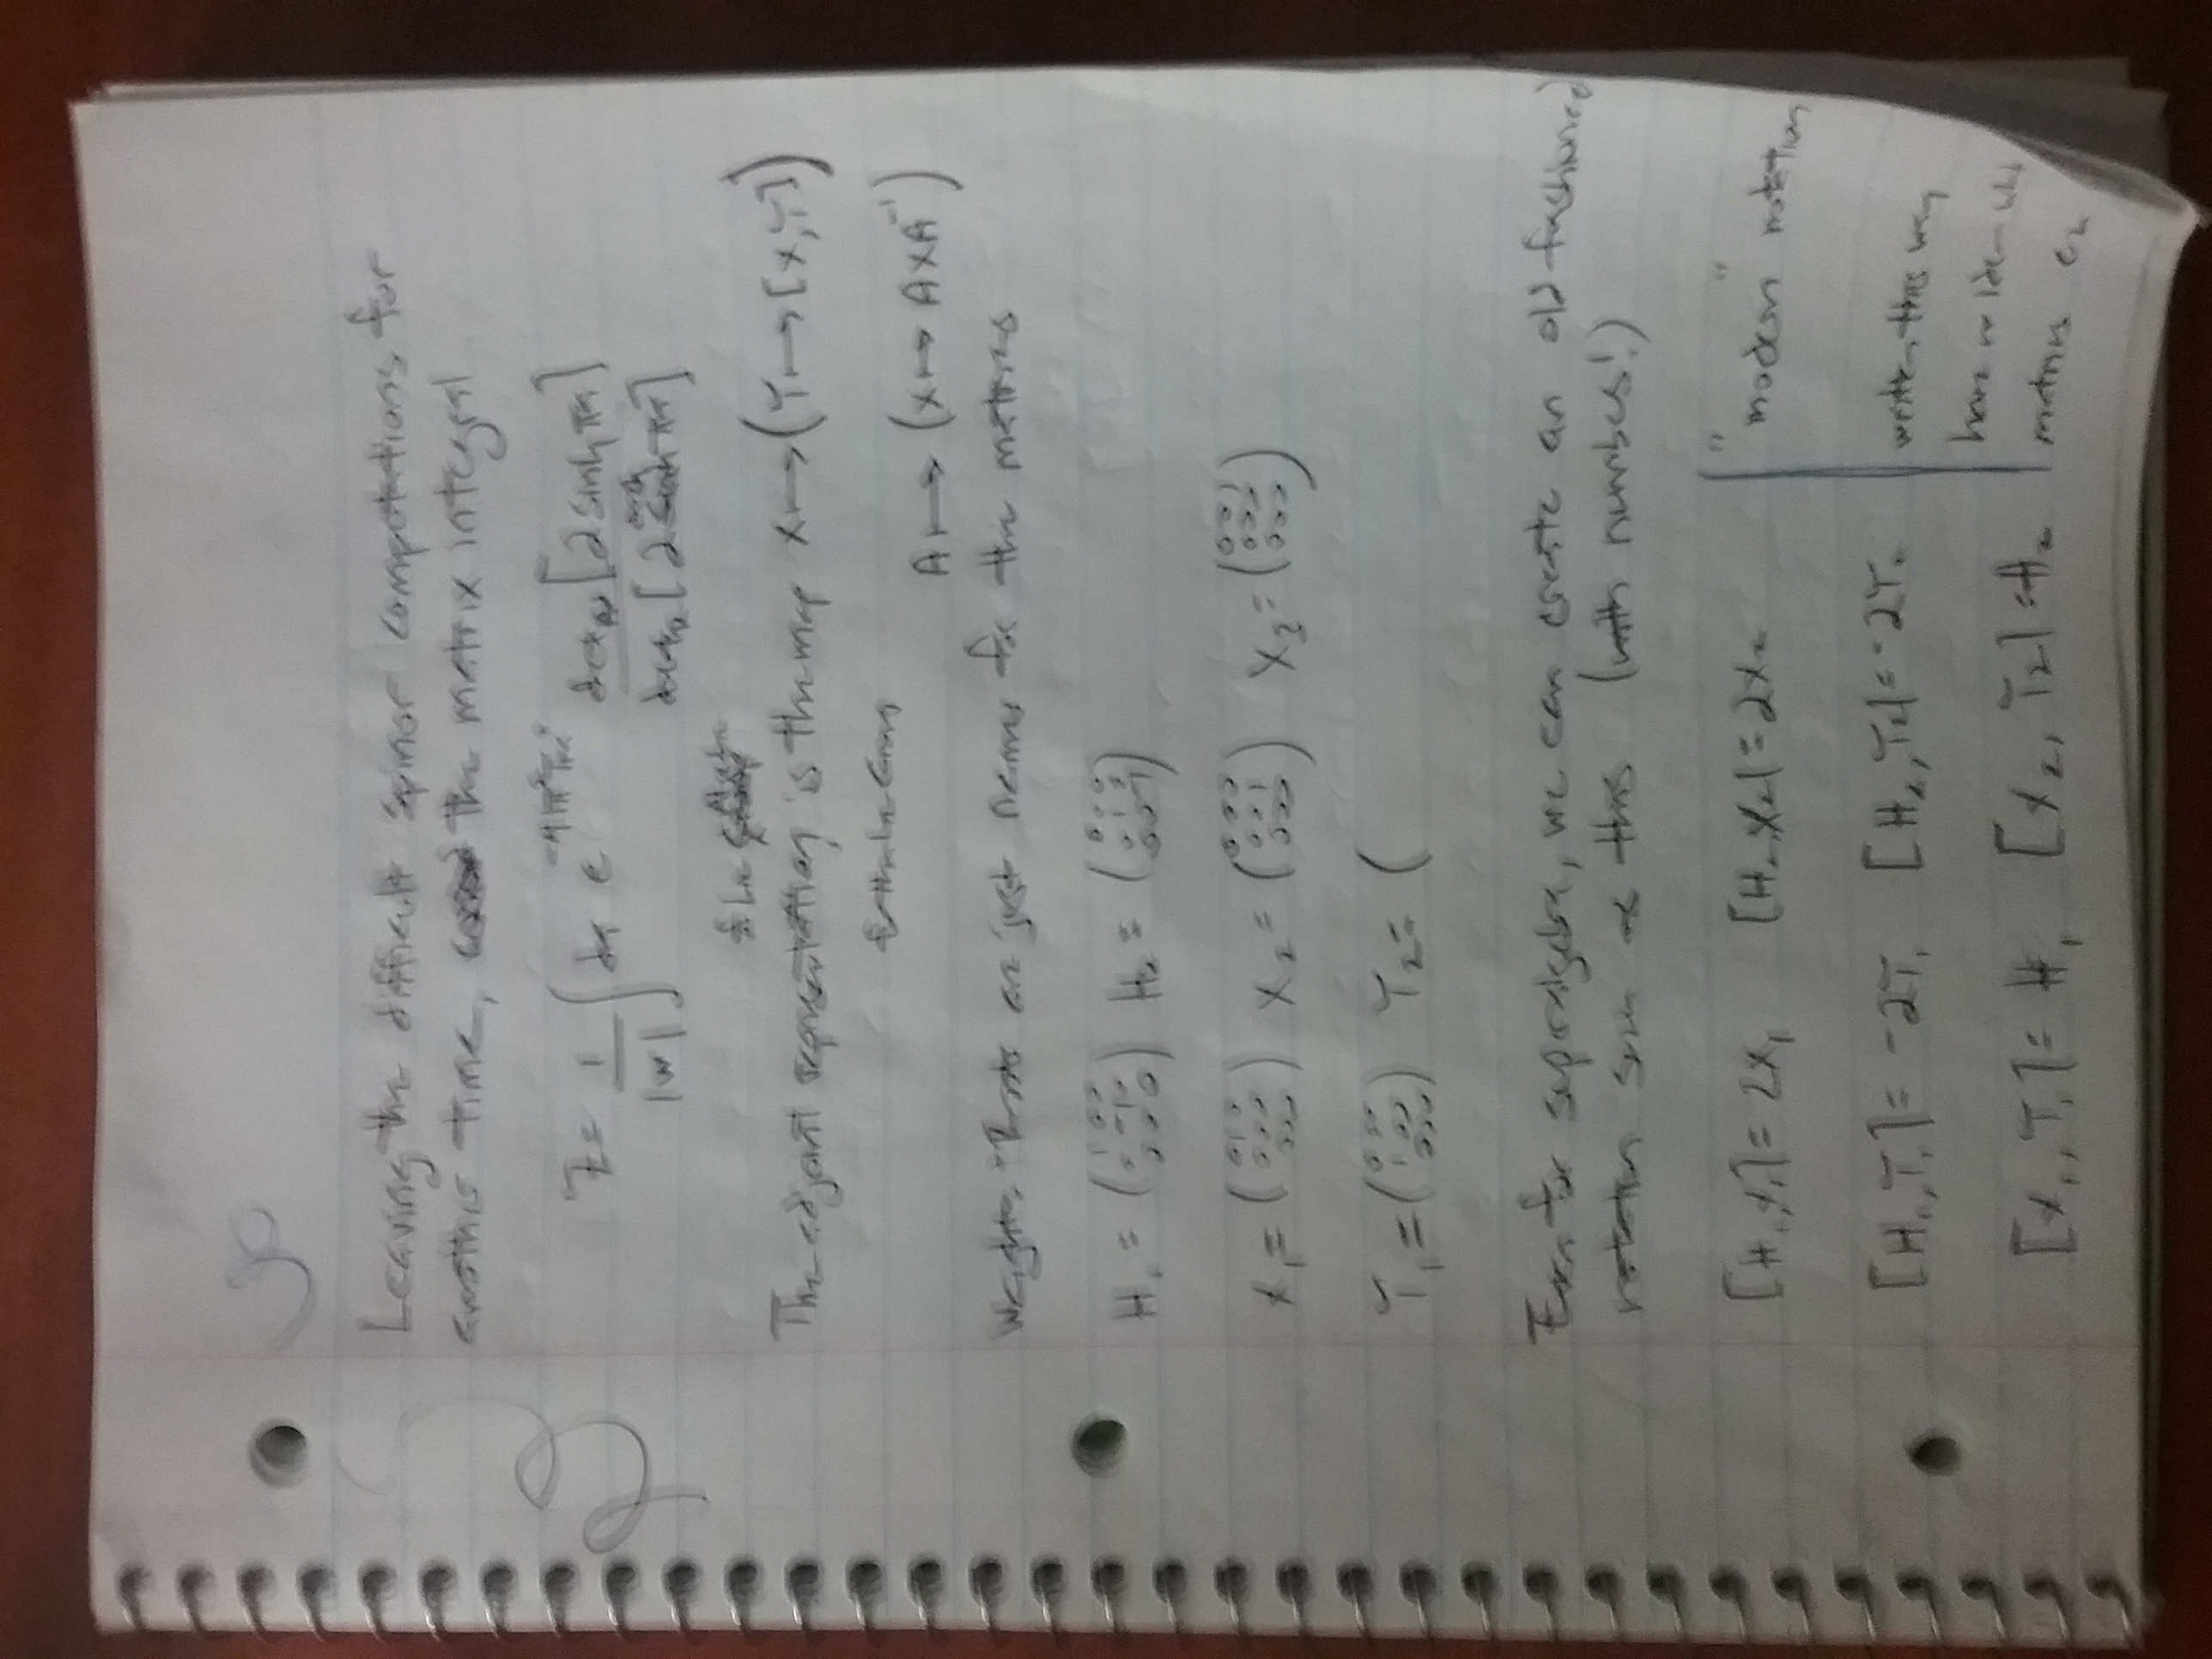 Leaving the difficult spinor computations for
another time, the matrix integral
Z = 1/|W| ∫ dσ e det [2 sinh πσ] / det [2 cosh πσ]
of Lie Algebra
The adjoint representation is the map X ↦ (Y ↦ [X,Y])
for the Lie Group
A ↦ (X ↦ AXA⁻¹)
Weights + Roots are just names for the matrices
H₁ = (1 0 0; 0 -1 0; 0 0 0) H₂ = (0 0 0; 0 1 0; 0 0 -1)
X₁ = (0 1 0; 0 0 0; 0 0 0) X₂ = (0 0 0; 0 0 1; 0 0 0) X₃ = (0 0 1; 0 0 0; 0 0 0)
Y₁ = (0 0 0; 1 0 0; 0 0 0) Y₂ = (
Even for superalgebra, we can create an old fashioned
notation such as this (with numbers!)
[H₁,X₁] = 2X₁ [H₂,X₂] = 2X₂
"modern" notation
[H₁,Y₁] = -2Y₁ [H₂,Y₂] = -2Y₂
written this way
have no idea what
[X₁,Y₁] = H₁ [X₂,Y₂] = H₂
matrices are